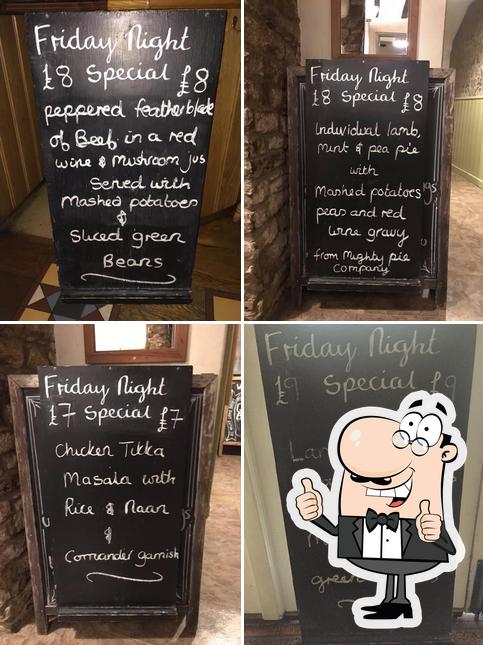 Friday Night
£8 Special £8
peppered featherblade
of Beef in a red
wine & Mushroom jus
Served with
Mashed potatoes
&
Sliced green
Beans
Friday Night
£8 Special £8
Individual lamb,
mint & pea pie
with
Mashed potatoes
peas and red
wine gravy
from Mighty pie
Company
Friday Night
£7 Special £7
Chicken Tikka
Masala with
Rice & Naan
&
Corriander garnish
Friday Night
£9 Special £9
green